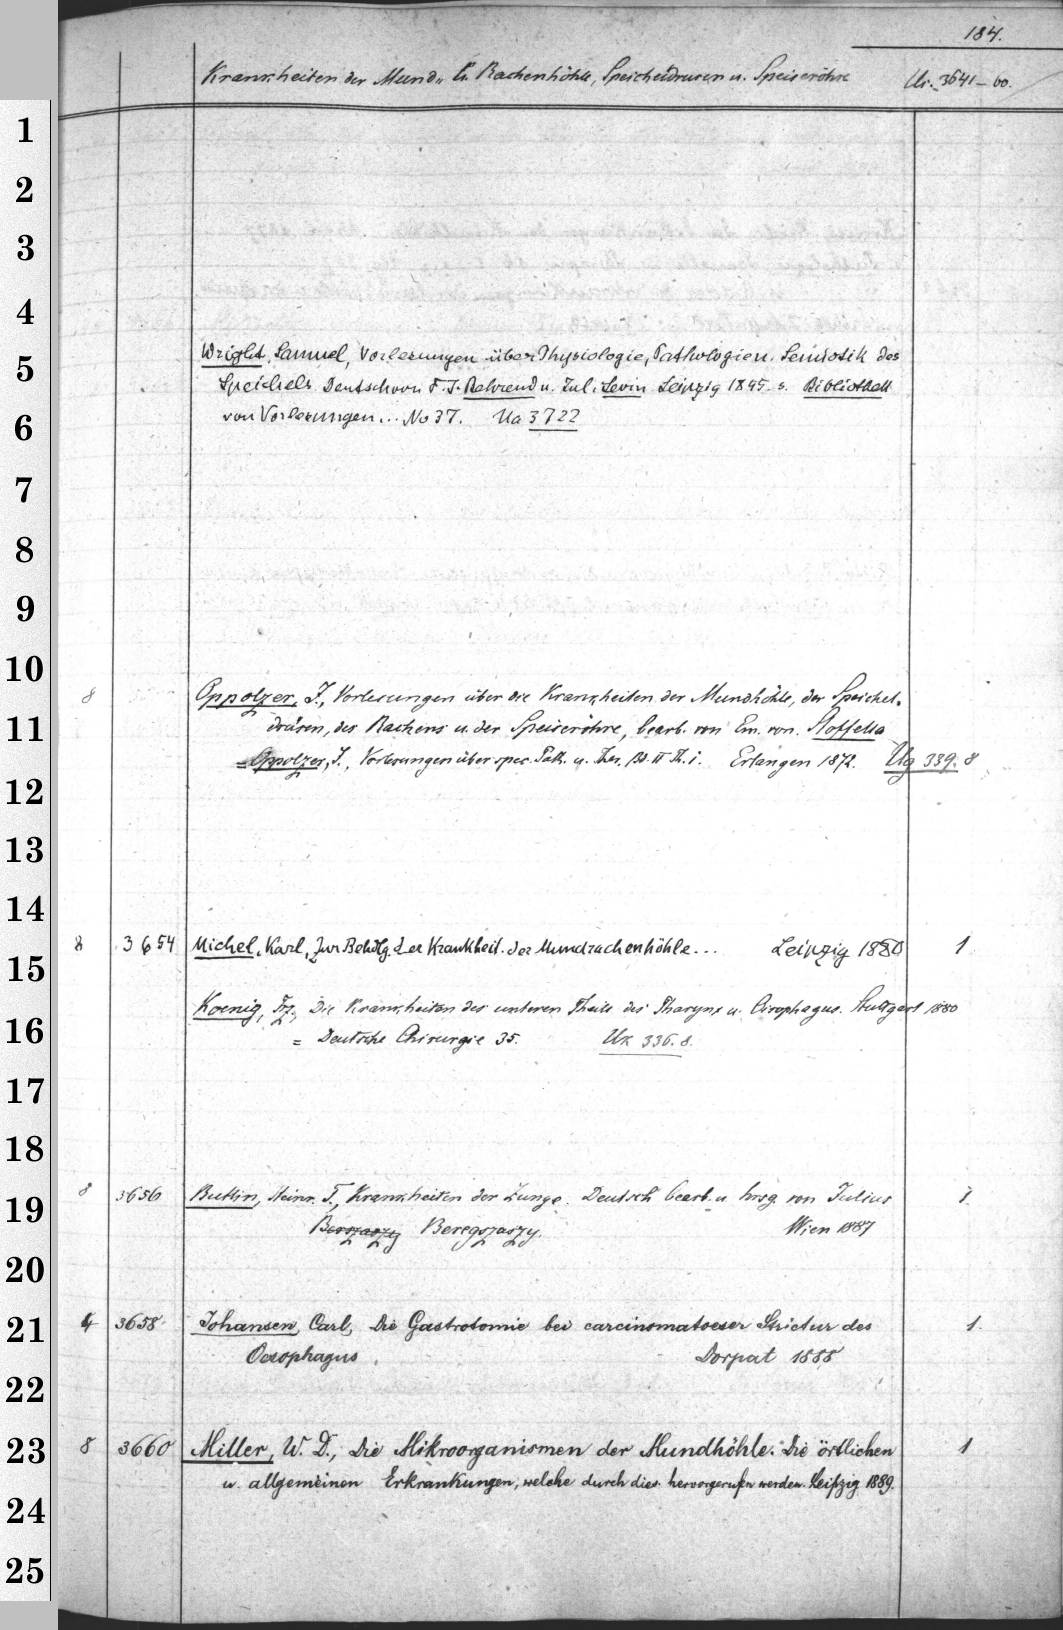 184.
Krankheiten der Mund- u. Rachenhöhle, Speicheldrüsen u. Speiseröhre Us. 3641-60.
1
2
3
4
5 Wright, Samuel, Vorlesungen über Physiologie, Pathologie u. Semiotik des
Speichels. Deutsch von F. J. Behrend u. Jul. Levin Leipzig 1845 s. Bibliothek
6 von Vorlesungen... No 37. Ua 3722
7
8
9
10
8 Oppolzer, J., Vorlesungen über die Krankheiten der Mundhöhle, der Speichel-
11 drüsen, des Rachens u. der Speiseröhre, bearb. von Em. von Stoffella
= Oppolzer, J., Vorlesungen über spec. Path. u. Ther. Bd. II Th. i. Erlangen 1872. Ug 339. 8
12
13
14
8 3654 Michel, Karl, Zur Behdlg. der Krankheit. der Mundrachenhöhle... Leipzig 1880 1
15
Koenig, Fz., Die Krankheiten des unteren Theils des Pharynx u. Oesophagus. Stuttgart 1880
16 = Deutsche Chirurgie 35. Uk 336. 8.
17
18
8 3656 Butlin, Heinr. T., Krankheiten der Zunge. Deutsch bearb. u. hrsg. von Julius 1
19 Beregszaszy. Wien 1887
20
21 4 3658 Johansen, Carl, Die Gastrotomie bei carcinomatoeser Strictur des 1.
Oesophagus. Dorpat 1888
22
23 8 3660 Miller, W. D., Die Mikroorganismen der Mundhöhle. Die örtlichen 1
u. allgemeinen Erkrankungen, welche durch dies. hervorgerufen werden. Leipzig 1889.
24
25